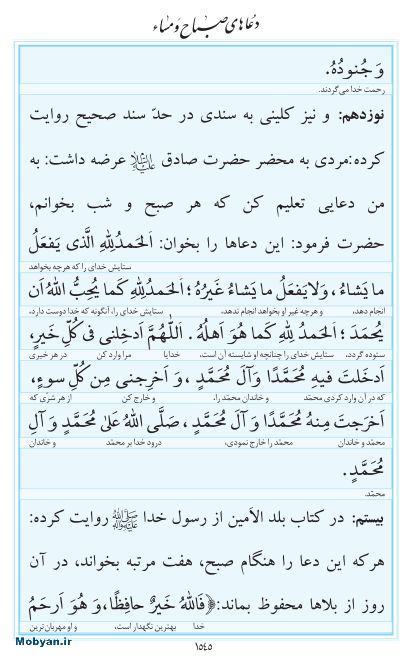 دعاهای صباح و مساء
وَ جُنودُهُ.
رحمت خدا می‌گردند.
نوزدهم: و نیز کلینی به سندی در حدّ سند صحیح روایت
کرده:مردی به محضر حضرت صادق علیه‌السلام عرضه داشت: به
من دعایی تعلیم کن که هر صبح و شب بخوانم،
حضرت فرمود: این دعاها را بخوان: اَلحَمدُلِلّٰهِ الَّذی یَفعَلُ
ستایش خدای را که هرچه بخواهد
ما یَشاءُ، وَلایَفعَلُ ما یَشاءُ غَیرُهُ؛ اَلحَمدُلِلّٰهِ کَما یُحِبُّ اللّٰهُ اَن
انجام دهد، و هرچه غیر او بخواهد انجام ندهد، ستایش خدای را، آنگونه که خدا دوست دارد،
یُحمَدَ؛ اَلحَمدُ لِلّٰهِ کَما هُوَ اَهلُهُ. اَللّٰهُمَّ اَدخِلنی فی کُلِّ خَیرٍ،
ستوده گردد، ستایش خدای را چنانچه او شایسته آن است، خدایا مرا وارد کن در هر خیری
اَدخَلتَ فیهِ مُحَمَّدًا وَآلَ مُحَمَّدٍ، وَ اَخرِجنی مِن کُلِّ سوءٍ،
که در آن وارد کردی محمّد و خاندان محمّد را، و خارج کن از هر شرّی که
اَخرَجتَ مِنهُ مُحَمَّدًا وَ آلَ مُحَمَّدٍ، صَلَّی اللّٰهُ عَلیٰ مُحَمَّدٍ وَ آلِ
محمّد و خاندان محمّد را خارج نمودی، درود خدا بر محمّد و خاندان
مُحَمَّدٍ.
محمّد.
بیستم: در کتاب بلد الاَمین از رسول خدا ﷺ روایت کرده:
هرکه این دعا را هنگام صبح، هفت مرتبه بخواند، در آن
روز از بلاها محفوظ بماند:﴿فَاللّٰهُ خَیرٌ حافِظًا، وَ هُوَ اَرحَمُ
خدا بهترین نگهدار است، و او مهربان‌ترین
۱۵۴۵
Mobyan.ir